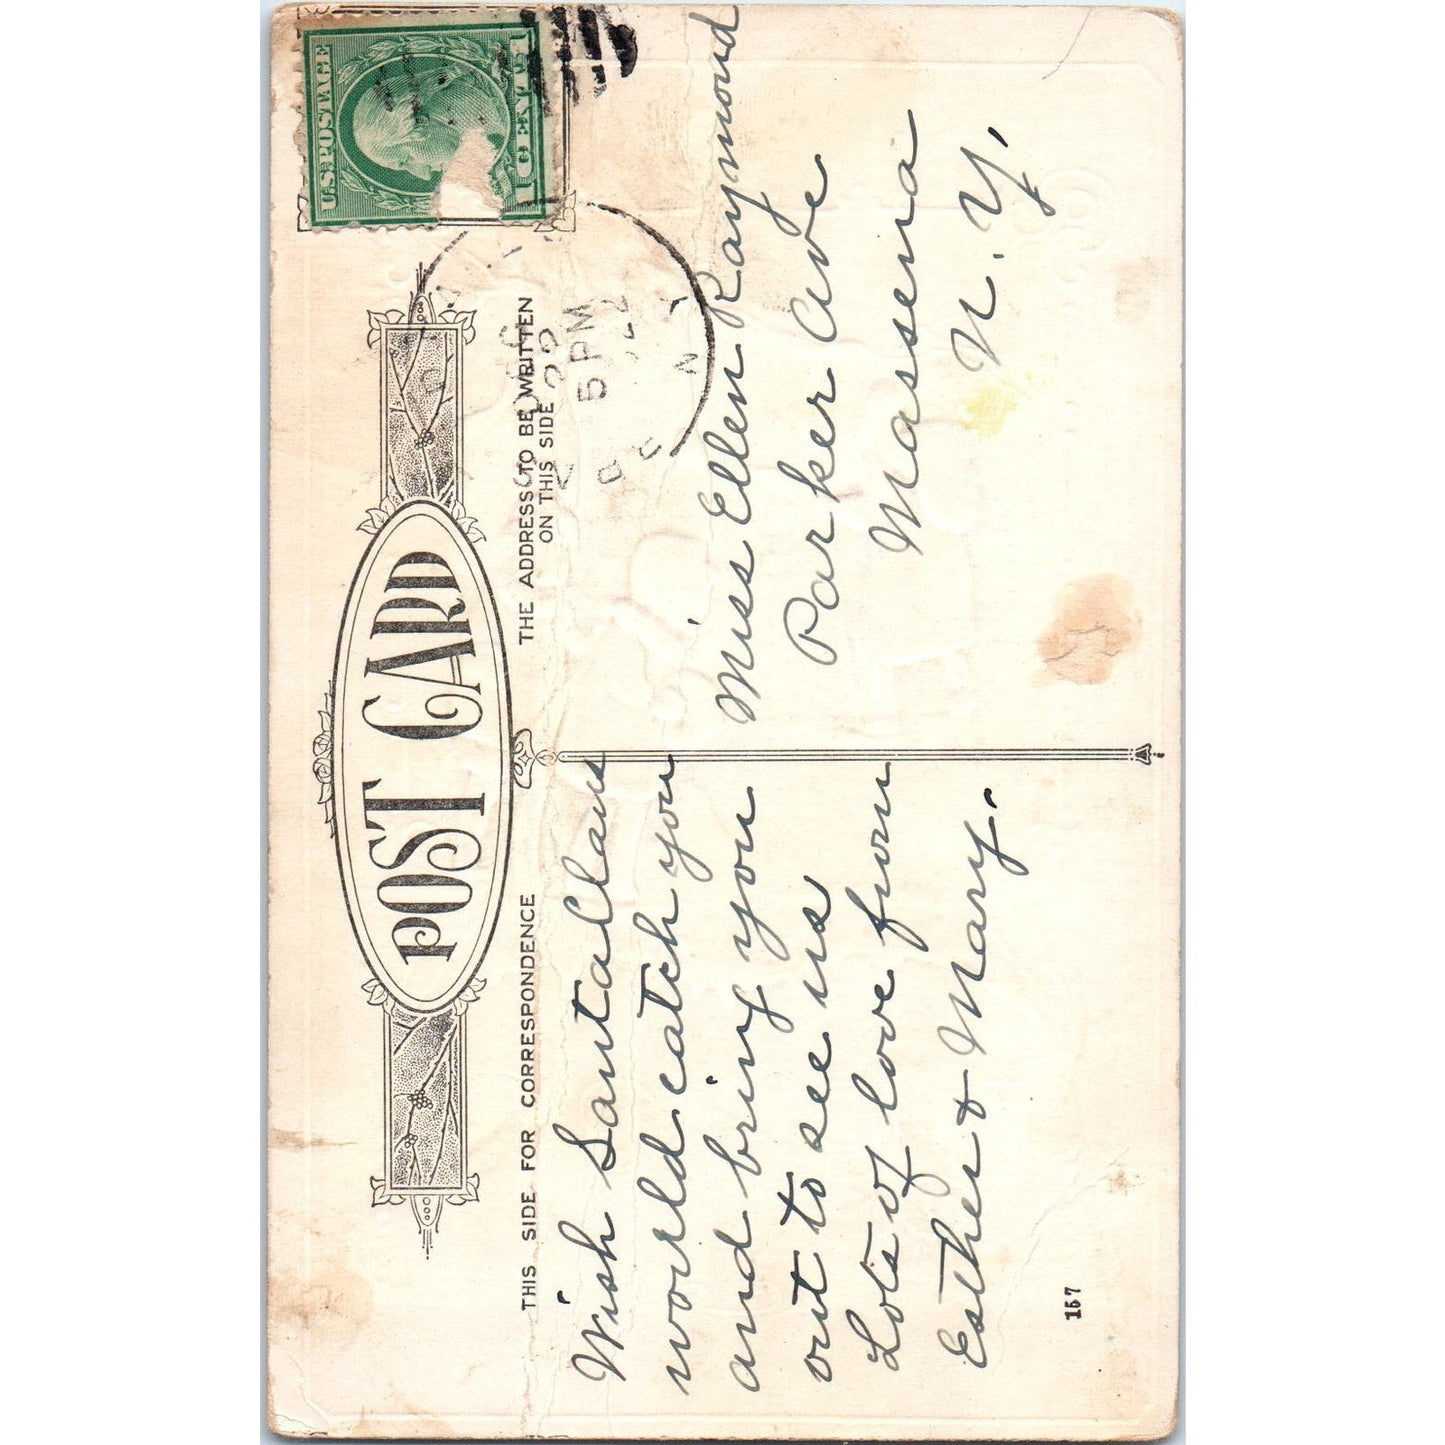 POST CARD
THIS SIDE FOR CORRESPONDENCE
THE ADDRESS TO BE WRITTEN
ON THIS SIDE
U.S. POSTAGE
DEC
22
5 PM
N Y
Wish Santa Claus
world catch you
and bring you
out to see us
Lots of love from
Esther & Mary.
Miss Ellen Raymond
Parker Ave
Massena
N. Y.
157